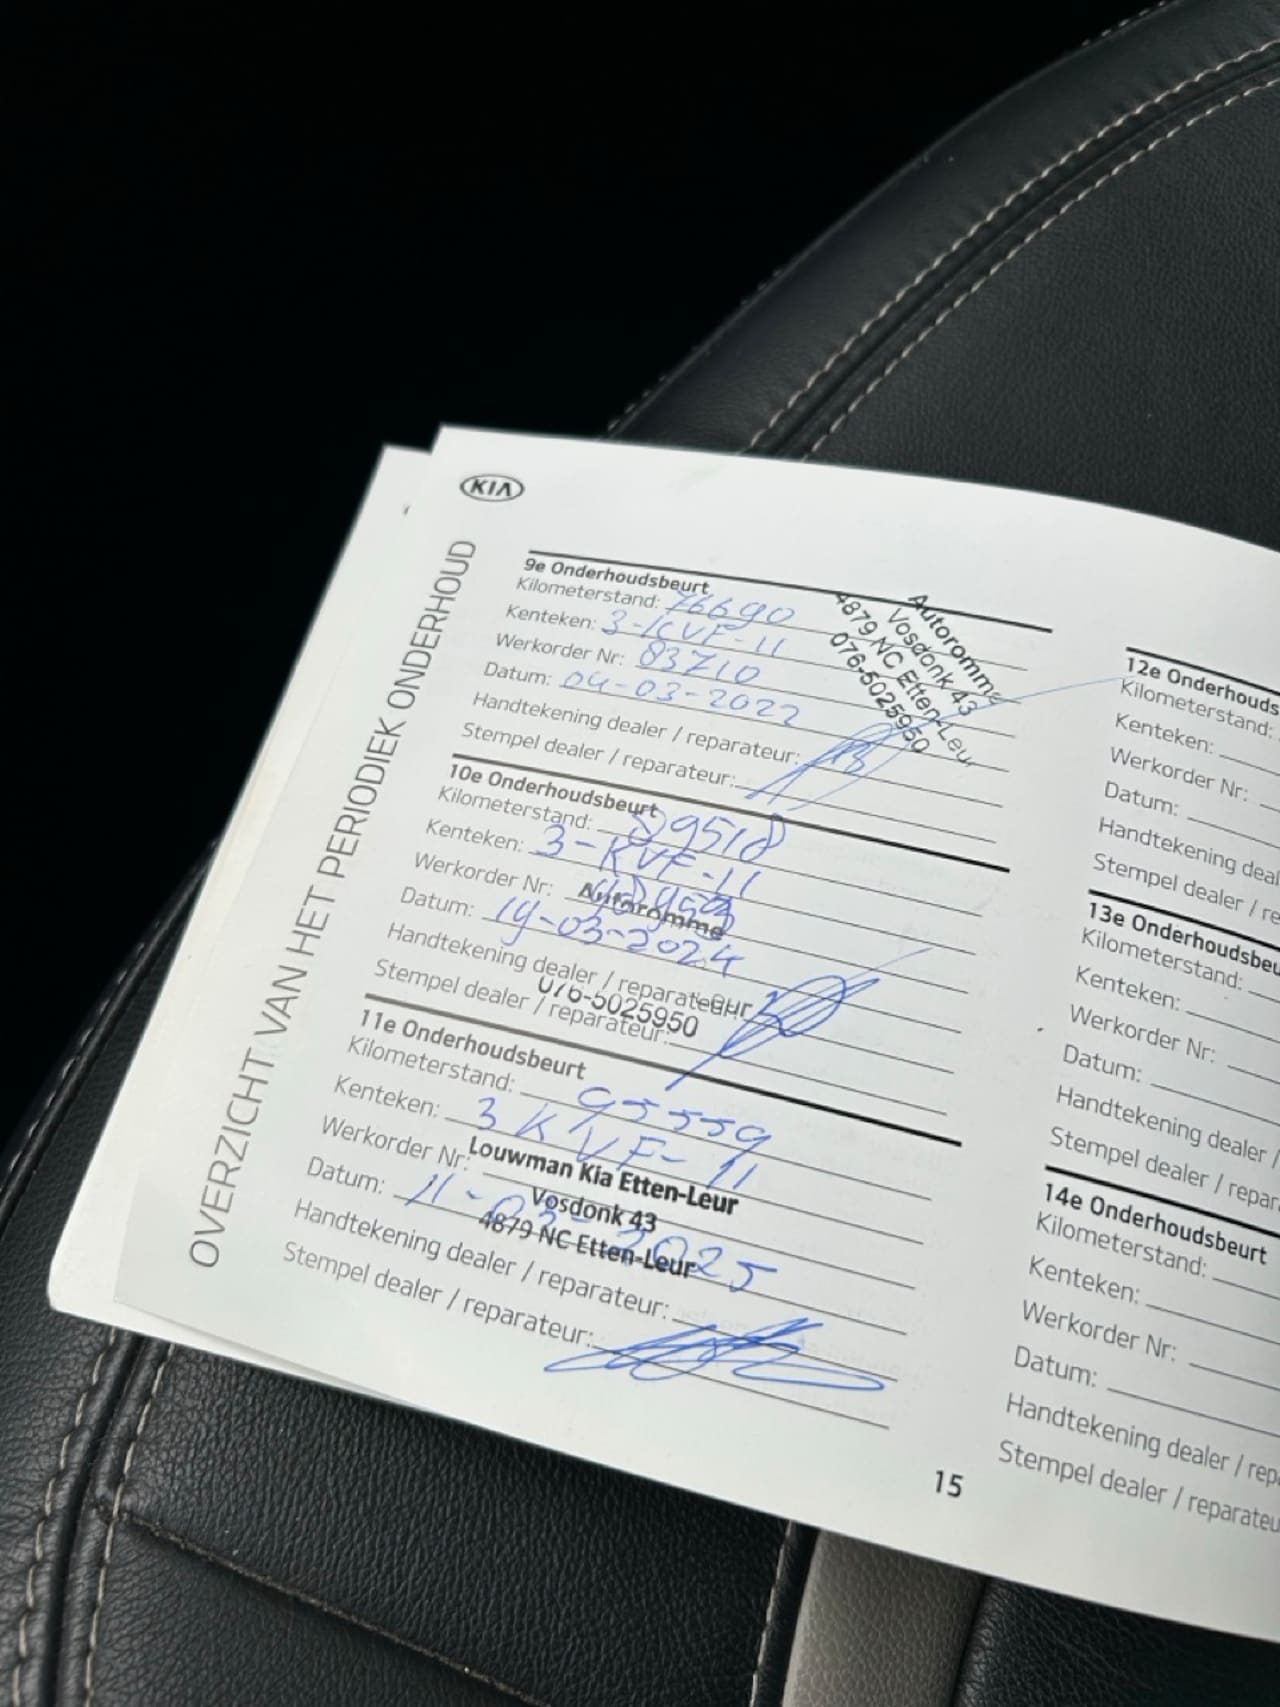 KIA
OVERZICHT VAN HET PERIODIEK ONDERHOUD
9e Onderhoudsbeurt
Kilometerstand: 76690
Kenteken: 3-KVF-11
Werkorder Nr: 83710
Datum: 04-03-2022
Handtekening dealer / reparateur:
Stempel dealer / reparateur:
Autoromme
Vosdonk 43
4879 NC Etten-Leur
076-5025950
10e Onderhoudsbeurt
Kilometerstand: 89518
Kenteken: 3-KVF-11
Werkorder Nr:
Datum: 19-03-2024
Handtekening dealer / reparateur:
Stempel dealer / reparateur:
Autoromme
076-5025950
11e Onderhoudsbeurt
Kilometerstand: 95559
Kenteken: 3 KVF-11
Werkorder Nr:
Datum: 11-03-2025
Handtekening dealer / reparateur:
Stempel dealer / reparateur:
Louwman Kia Etten-Leur
Vosdonk 43
4879 NC Etten-Leur
15
12e Onderhouds
Kilometerstand:
Kenteken:
Werkorder Nr:
Datum:
Handtekening deal
Stempel dealer / re
13e Onderhoudsbeu
Kilometerstand:
Kenteken:
Werkorder Nr:
Datum:
Handtekening dealer /
Stempel dealer / repar
14e Onderhoudsbeurt
Kilometerstand:
Kenteken:
Werkorder Nr:
Datum:
Handtekening dealer / rep
Stempel dealer / reparateu